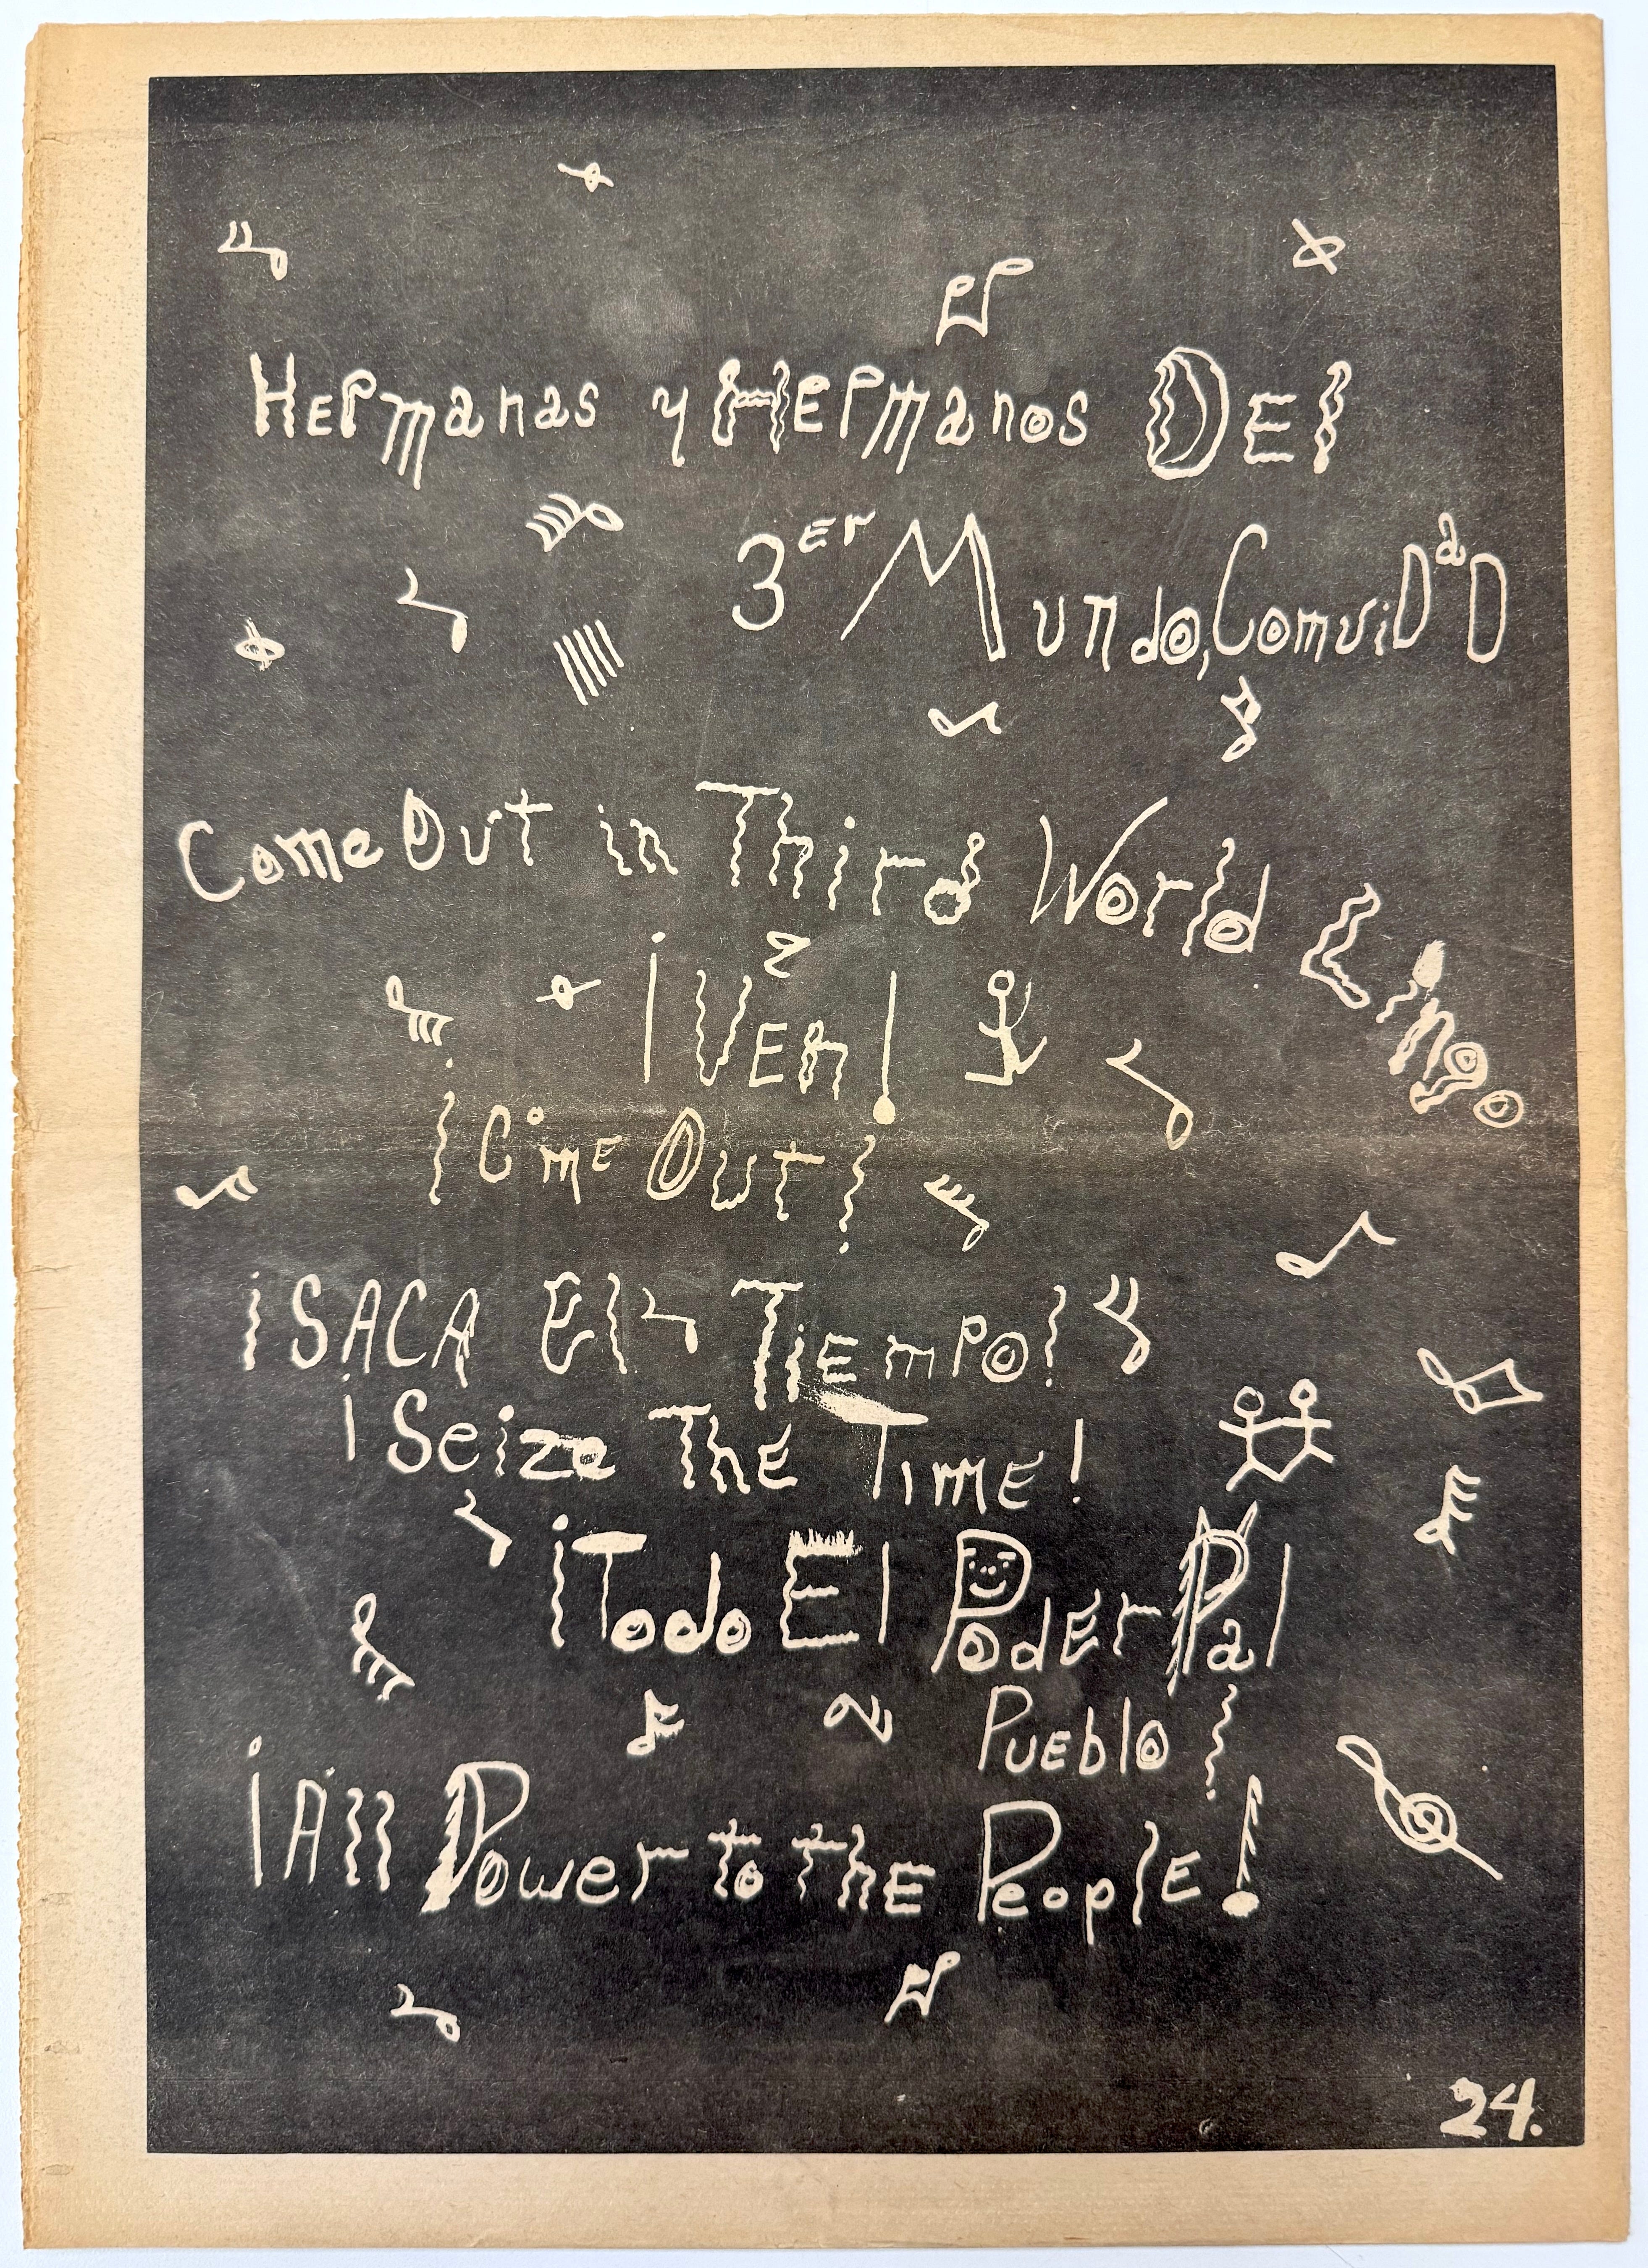 Hermanas y Hermanos Del
3er Mundo, ComuiDaD
Come Out in Third World Lingo
¡Ven!
¡Come Out!
¡SACA El Tiempo!
¡Seize The Time!
¡Todo El Poder Pal
Pueblo!
¡All Power to the People!
24.